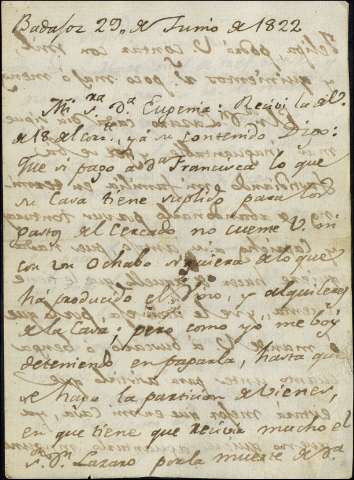 Badajoz 29,, de Junio de 1822
Mi s.ra D.a Eugenia: Recivi la de V.
de 18 del corr.te, y á su contenido Digo:
Que si pago a D.a Francisca lo que
su Casa tiene suplido para los
pastos del Cercado no cuente V. ni
con un Ochabo siquiera de lo que
ha producido el Vino, y alquileres
de la Casa; pero como yo me boy
deteniendo en pagarla, hasta que
se haga la particion de bienes,
en que tiene que recivir mucho el
s.r D.n Lazaro por la muerte de D.a